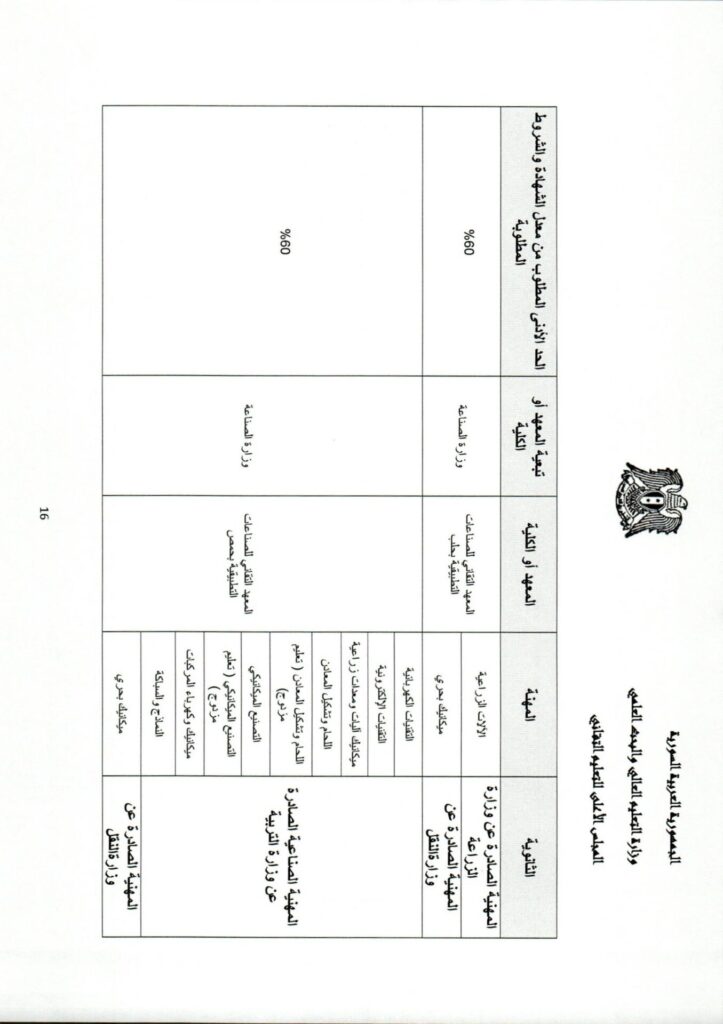 الجمهورية العربية السورية
وزارة التعليم العالي والبحث العلمي
المجلس الأعلى للتعليم التقاني
الثانوية
المهنة
المعهد أو الكلية
تبعية المعهد أو
الكلية
الحد الأدنى المطلوب من معدل الشهادة والشروط
المطلوبة
المهنية الصادرة عن وزارة
الزراعة
الآلات الزراعية
المعهد التقاني للصناعات
التطبيقية بحلب
وزارة الصناعة
60%
المهنية الصادرة عن
وزارة النقل
ميكانيك بحري
المهنية الصناعية الصادرة
عن وزارة التربية
التقنيات الكهربائية
المعهد التقاني للصناعات
التطبيقية بحمص
وزارة الصناعة
60%
التقنيات الإلكترونية
ميكانيك آليات ومعدات زراعية
اللحام وتشكيل المعادن
اللحام وتشكيل المعادن ( تعليم
مزدوج)
التصنيع الميكانيكي
التصنيع الميكانيكي ( تعليم
مزدوج )
ميكانيك وكهرباء المركبات
النماذج والسباكة
المهنية الصادرة عن
وزارة النقل
ميكانيك بحري
16